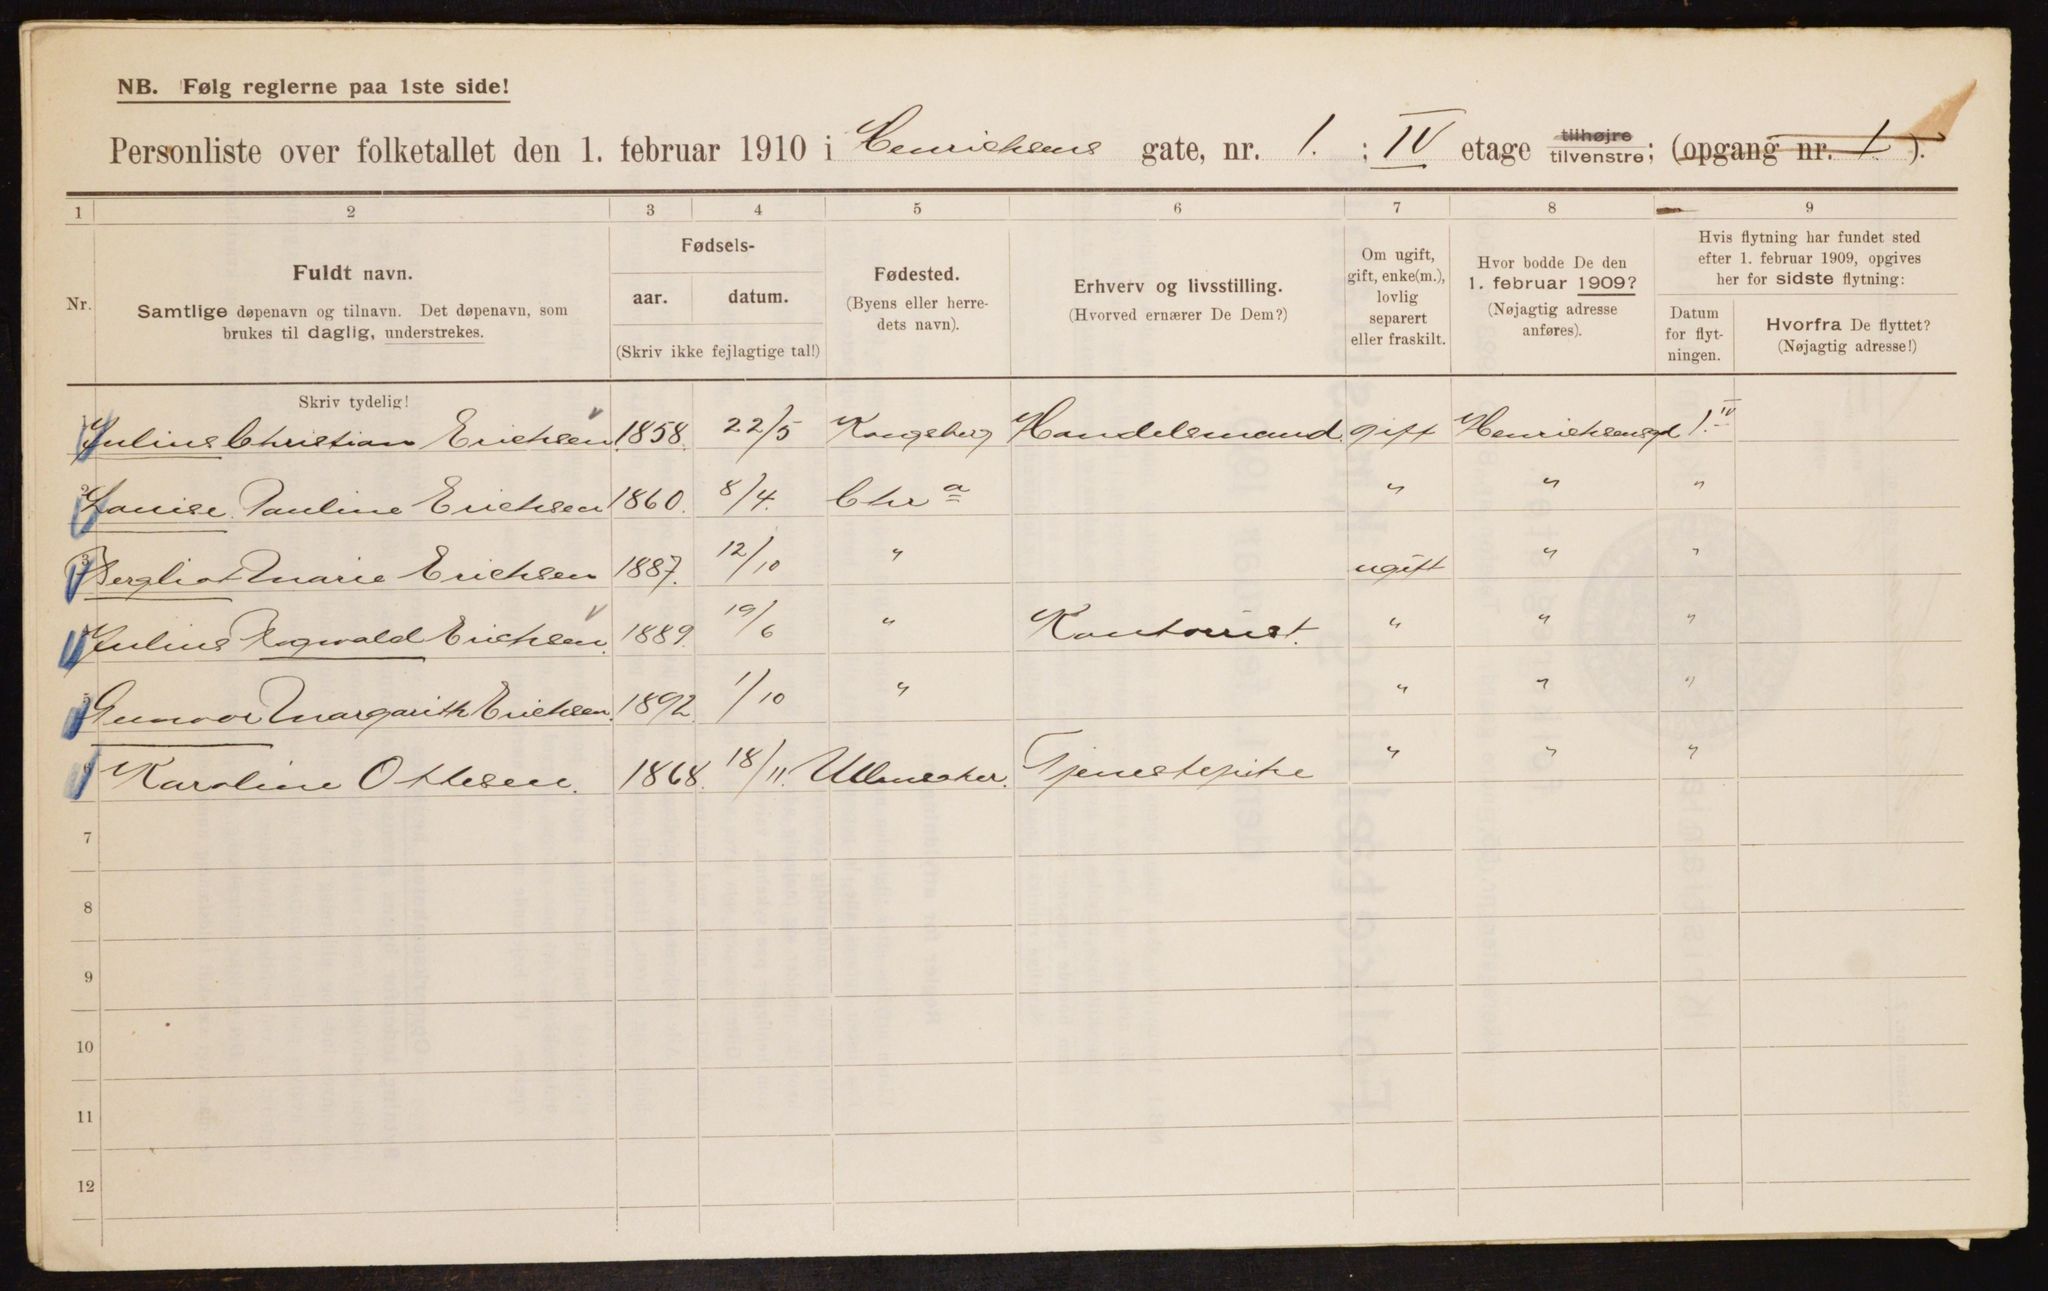 NB. Følg reglerne paa 1ste side!
Personliste over folketallet den 1. februar 1910 i Henrichsens gate, nr. 1. : IV etage tilhøjre tilvenstre; (opgang nr. 1).
1 2 3 4 5 6 7 8 9
Nr.
Fuldt navn.
Samtlige døpenavn og tilnavn. Det døpenavn, som
brukes til daglig, understrekes.
Fødsels-
aar. datum.
(Skriv ikke fejlagtige tal!)
Fødested.
(Byens eller herre-
dets navn).
Erhverv og livsstilling.
(Hvorved ernærer De Dem?)
Om ugift,
gift, enke(m.),
lovlig
separert
eller fraskilt.
Hvor bodde De den
1. februar 1909?
(Nøjagtig adresse
anføres).
Hvis flytning har fundet sted
efter 1. februar 1909, opgives
her for sidste flytning:
Datum
for flyt-
ningen.
Hvorfra De flyttet?
(Nøjagtig adresse!)
Skriv tydelig!
1 Julius Christian Erichsen 1858. 22/5 Kongsberg Handelsmand. gift Henrichsensgd 1. IV
2 Louise Pauline Erichsen 1860. 8/4. Chra " " "
3 Bergliot Marie Erichsen 1887. 12/10 " ugift " "
4 Julius Ragwald Erichsen. 1889. 19/6 " Kontorist. " " "
5 Gunvor Margarith Erichsen. 1892. 1/10 " " " "
6 Karoline Ottesen. 1868. 18/11. Ullensaker. Tjenestepike " " "
7
8
9
10
11
12